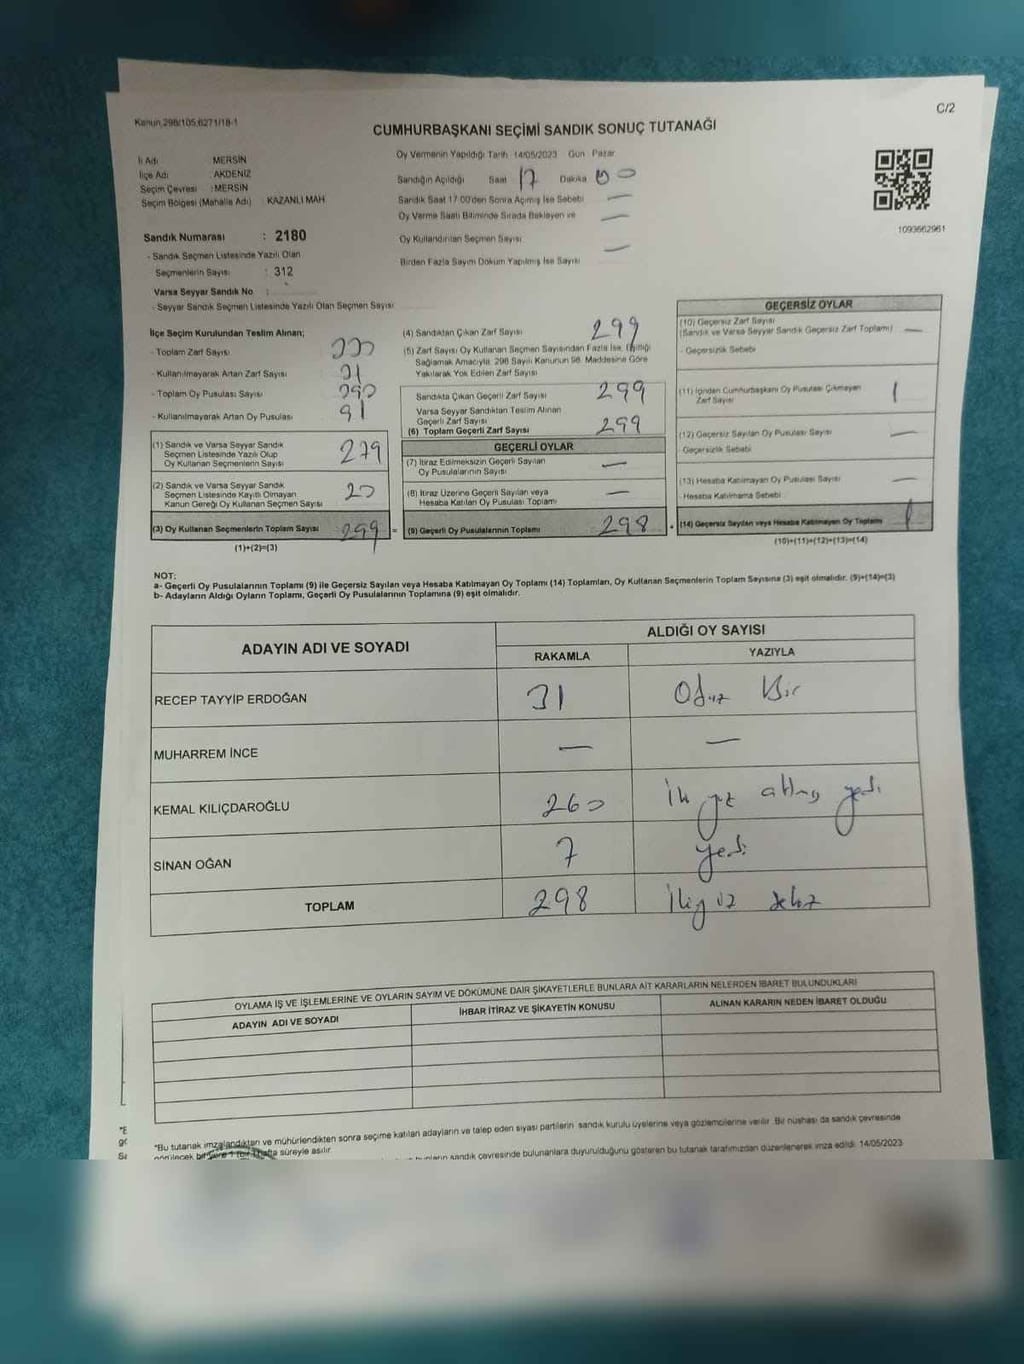 C/2
Kanun,298/105,6271/18-1
CUMHURBAŞKANI SEÇİMİ SANDIK SONUÇ TUTANAĞI
İl Adı MERSİN
İlçe Adı AKDENİZ
Seçim Çevresi :MERSİN
Seçim Bölgesi (Mahalle Adı) KAZANLI MAH
Sandık Numarası : 2180
- Sandık Seçmen Listesinde Yazılı Olan
Seçmenlerin Sayısı : 312
Varsa Seyyar Sandık No :
- Seyyar Sandık Seçmen Listesinde Yazılı Olan Seçmen Sayısı
Oy Vermenin Yapıldığı Tarih 14/05/2023 Gün Pazar
Sandığın Açıldığı Saat 17 Dakika 00
Sandık Saat 17:00'den Sonra Açılmış İse Sebebi —
Oy Verme Saati Bitiminde Sırada Bekleyen ve —
Oy Kullandırılan Seçmen Sayısı
Birden Fazla Sayım Döküm Yapılmış İse Sayısı —
1093662961
İlçe Seçim Kurulundan Teslim Alınan;
- Toplam Zarf Sayısı
- Kullanılmayarak Artan Zarf Sayısı
- Toplam Oy Pusulası Sayısı
- Kullanılmayarak Artan Oy Pusulası 91
(1) Sandık ve Varsa Seyyar Sandık
Seçmen Listesinde Yazılı Olup
Oy Kullanan Seçmenlerin Sayısı 279
(2) Sandık ve Varsa Seyyar Sandık
Seçmen Listesinde Kayıtlı Olmayan
Kanun Gereği Oy Kullanan Seçmen Sayısı 20
(3) Oy Kullanan Seçmenlerin Toplam Sayısı 299 =
(1)+(2)=(3)
(4) Sandıktan Çıkan Zarf Sayısı 299
(5) Zarf Sayısı Oy Kullanan Seçmen Sayısından Fazla İse, Eşitliği
Sağlamak Amacıyla, 298 Sayılı Kanunun 98. Maddesine Göre
Yakılarak Yok Edilen Zarf Sayısı
Sandıkta Çıkan Geçerli Zarf Sayısı 299
Varsa Seyyar Sandıktan Teslim Alınan
Geçerli Zarf Sayısı
(6) Toplam Geçerli Zarf Sayısı 299
GEÇERLİ OYLAR
(7) İtiraz Edilmeksizin Geçerli Sayılan
Oy Pusulalarının Sayısı —
(8) İtiraz Üzerine Geçerli Sayılan veya
Hesaba Katılan Oy Pusulası Toplamı —
(9) Geçerli Oy Pusulalarının Toplamı 298 +
GEÇERSİZ OYLAR
(10) Geçersiz Zarf Sayısı
(Sandık ve Varsa Seyyar Sandık Geçersiz Zarf Toplamı) —
- Geçersizlik Sebebi
(11) İçinden Cumhurbaşkanı Oy Pusulası Çıkmayan
Zarf Sayısı 1
(12) Geçersiz Sayılan Oy Pusulası Sayısı —
Geçersizlik Sebebi
(13) Hesaba Katılmayan Oy Pusulası Sayısı —
- Hesaba Katılmama Sebebi
(14) Geçersiz Sayılan veya Hesaba Katılmayan Oy Toplamı 1
(10)+(11)+(12)+(13)=(14)
NOT:
a- Geçerli Oy Pusulalarının Toplamı (9) ile Geçersiz Sayılan veya Hesaba Katılmayan Oy Toplamı (14) Toplamları, Oy Kullanan Seçmenlerin Toplam Sayısına (3) eşit olmalıdır. (9)+(14)=(3)
b- Adayların Aldığı Oyların Toplamı, Geçerli Oy Pusulalarının Toplamına (9) eşit olmalıdır.
ADAYIN ADI VE SOYADI ALDIĞI OY SAYISI
RAKAMLA YAZIYLA
RECEP TAYYİP ERDOĞAN 31 Otuz Bir
MUHARREM İNCE — —
KEMAL KILIÇDAROĞLU 260 iki yüz altmış yedi
SİNAN OĞAN 7 yedi
TOPLAM 298
OYLAMA İŞ VE İŞLEMLERİNE VE OYLARIN SAYIM VE DÖKÜMÜNE DAİR ŞİKAYETLERLE BUNLARA AİT KARARLARIN NELERDEN İBARET BULUNDUKLARI
ADAYIN ADI VE SOYADI İHBAR İTİRAZ VE ŞİKAYETİN KONUSU ALINAN KARARIN NEDEN İBARET OLDUĞU
*Bu tutanak imzalandıktan ve mühürlendikten sonra seçime katılan adayların ve talep eden siyasi partilerin sandık kurulu üyelerine veya gözlemcilerine verilir. Bir nüshası da sandık çevresinde
görülecek bir yere 1 bir hafta süreyle asılır.
sandık çevresinde bulunanlara duyurulduğunu gösteren bu tutanak tarafımızdan düzenlenerek imza edildi. 14/05/2023